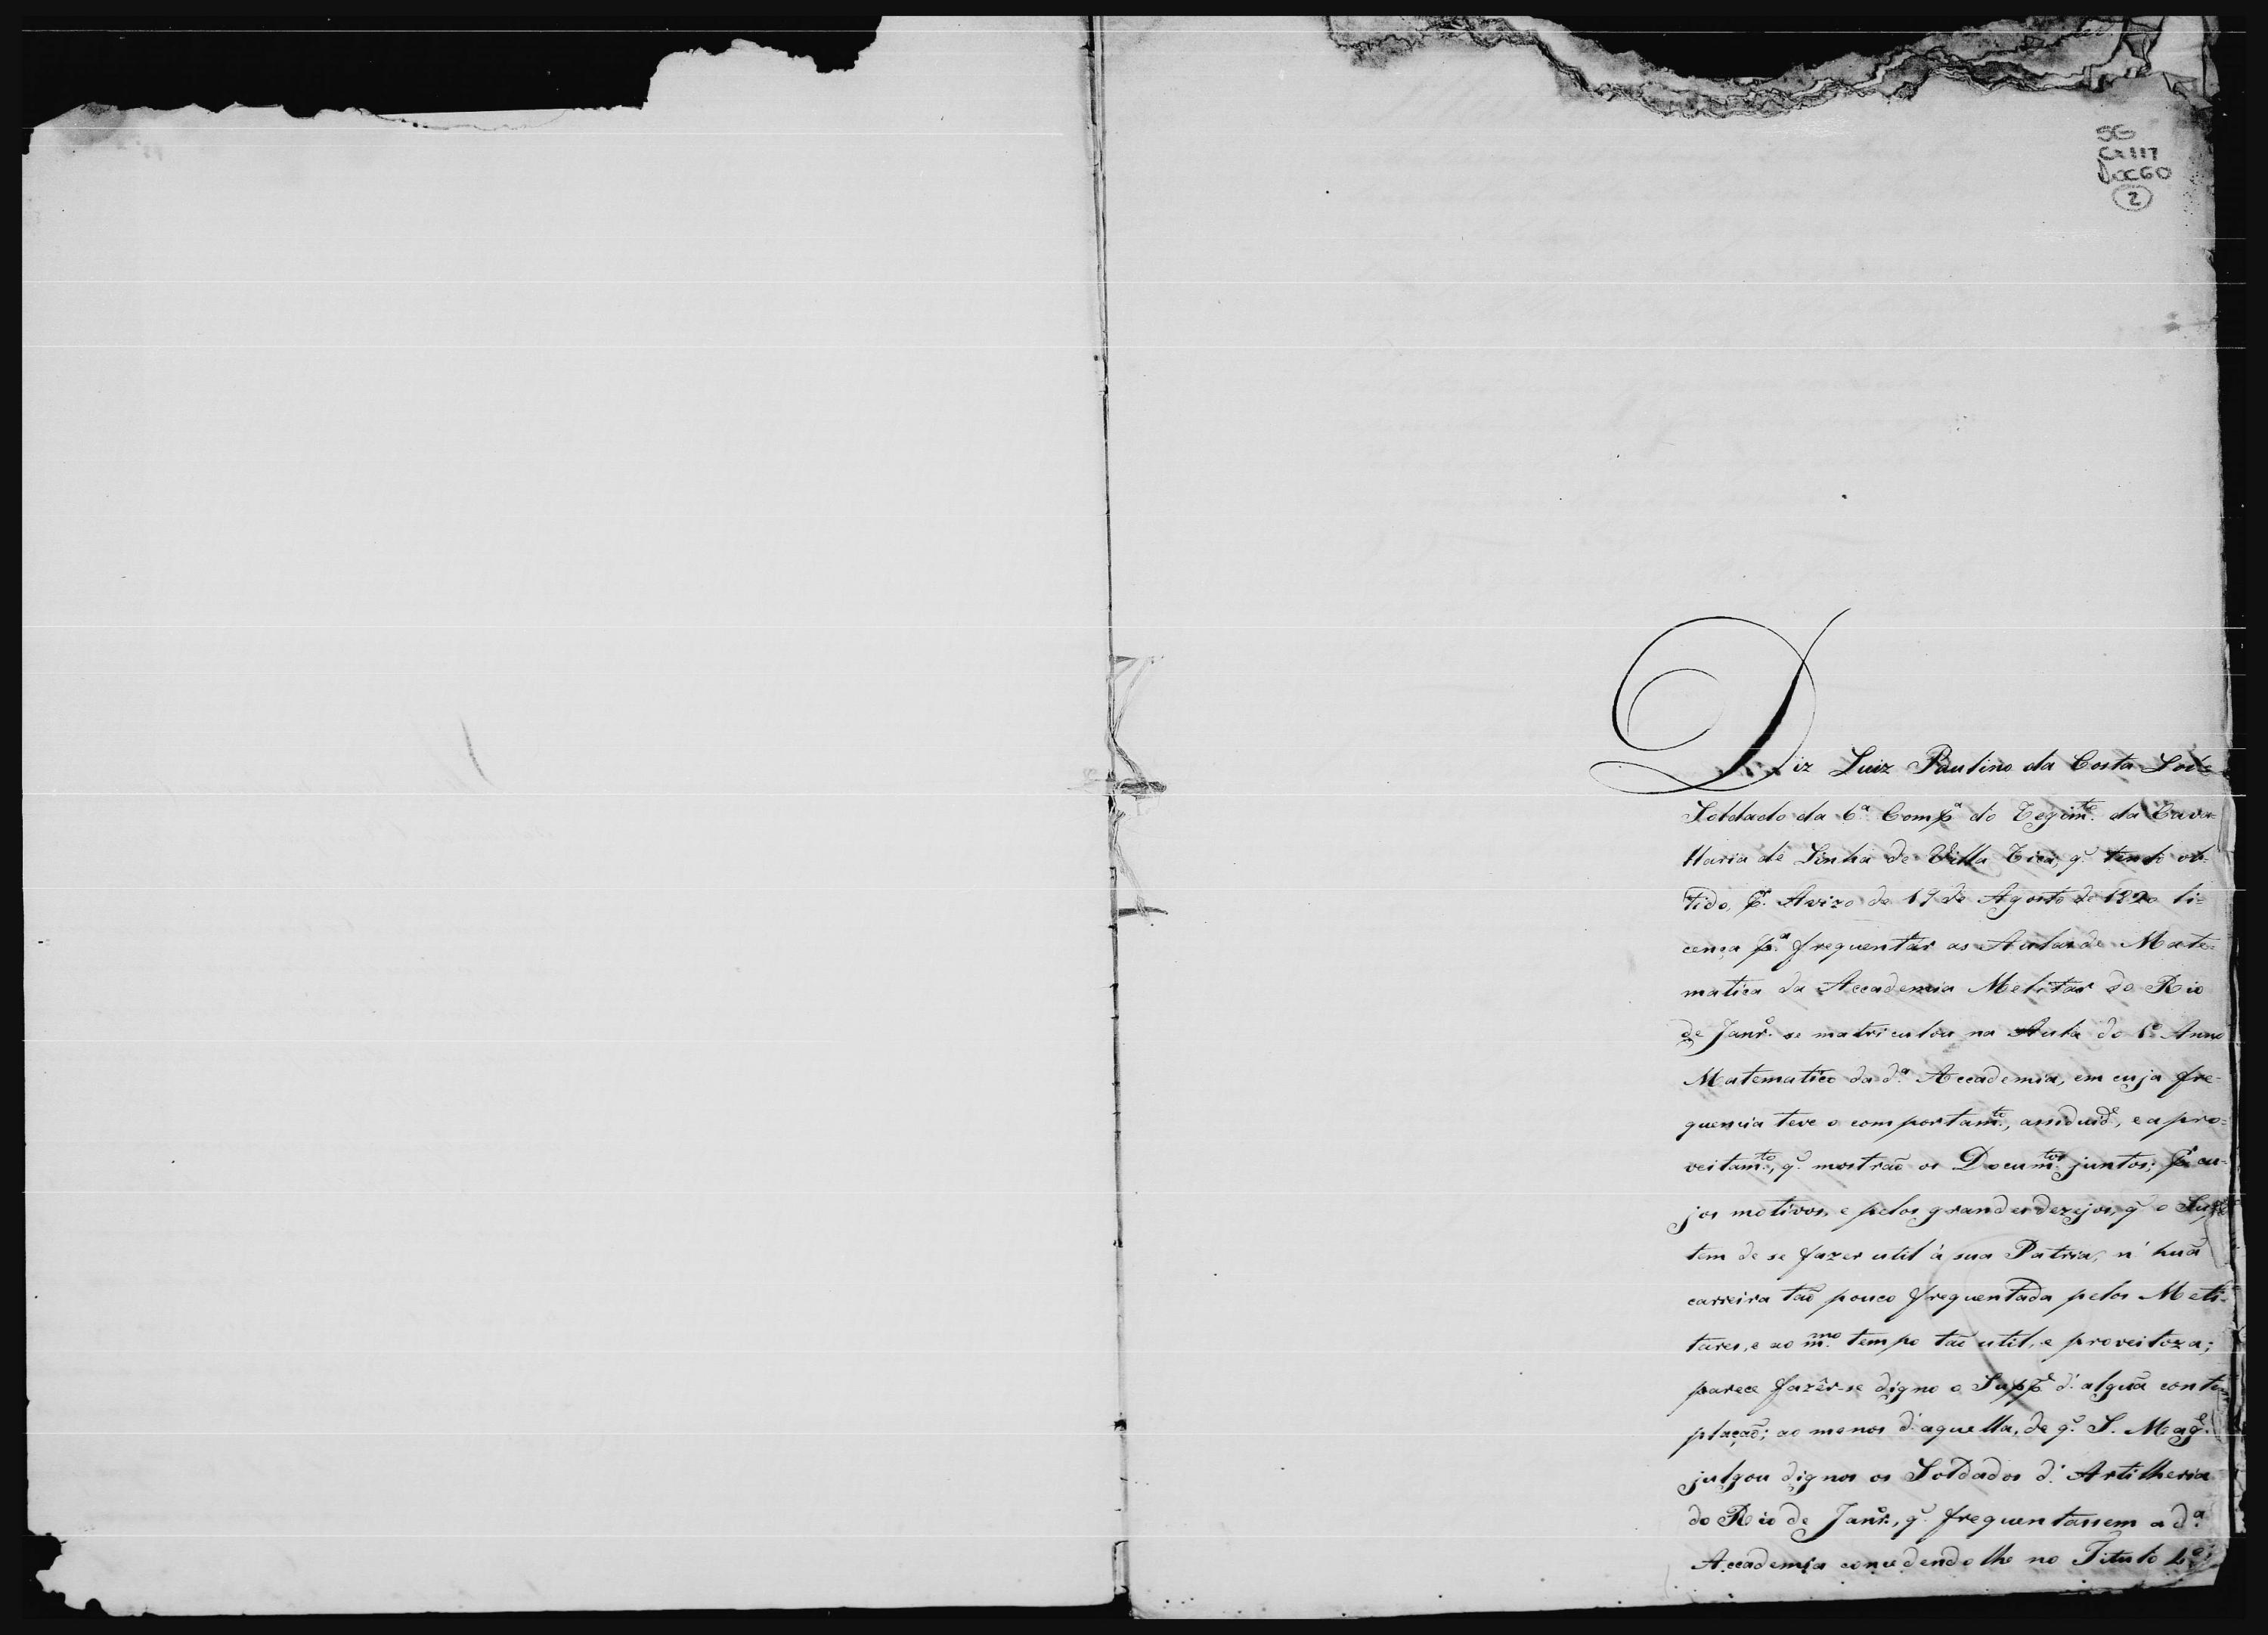 SG
Cx 117
Doc 60
2
Diz Luiz Paulino da Costa Lobo
Soldado da 6ª Compª do Regimto. da Caval-
llaria de Linha de Villa Rica, q' tendo ob-
tido, pr. Avizo de 19 de Agosto de 1820 li-
cença pª. frequentar as Aulas de Mate-
matica da Accademia Melitar do Rio
de Janrº. se matriculou na Aula do 1º Anno
Matematico da dª. Accademia, em cuja fre-
quencia teve o comportamto., assiduide., e apro-
veitamto., q' mostraõ os Documtos. juntos; pr. cu-
jos motivos, e pelos grandes dezejos, q' o Suppe
tem de se fazer util á sua Patria, n'huã
carreira taõ pouco frequentada pelos Meli-
tares, e ao mmo. tempo taõ util, e proveitoza;
parece fazêr-se digno o Suppe. d'alguã contem-
plaçaõ; ao menos d'aquella, de q' S. Mage.
julgou dignos os Soldados d'Artilheria
do Rio de Janrº., q' frequentassem a dª.
Accademia concedendo lhe no Titulo 4º,